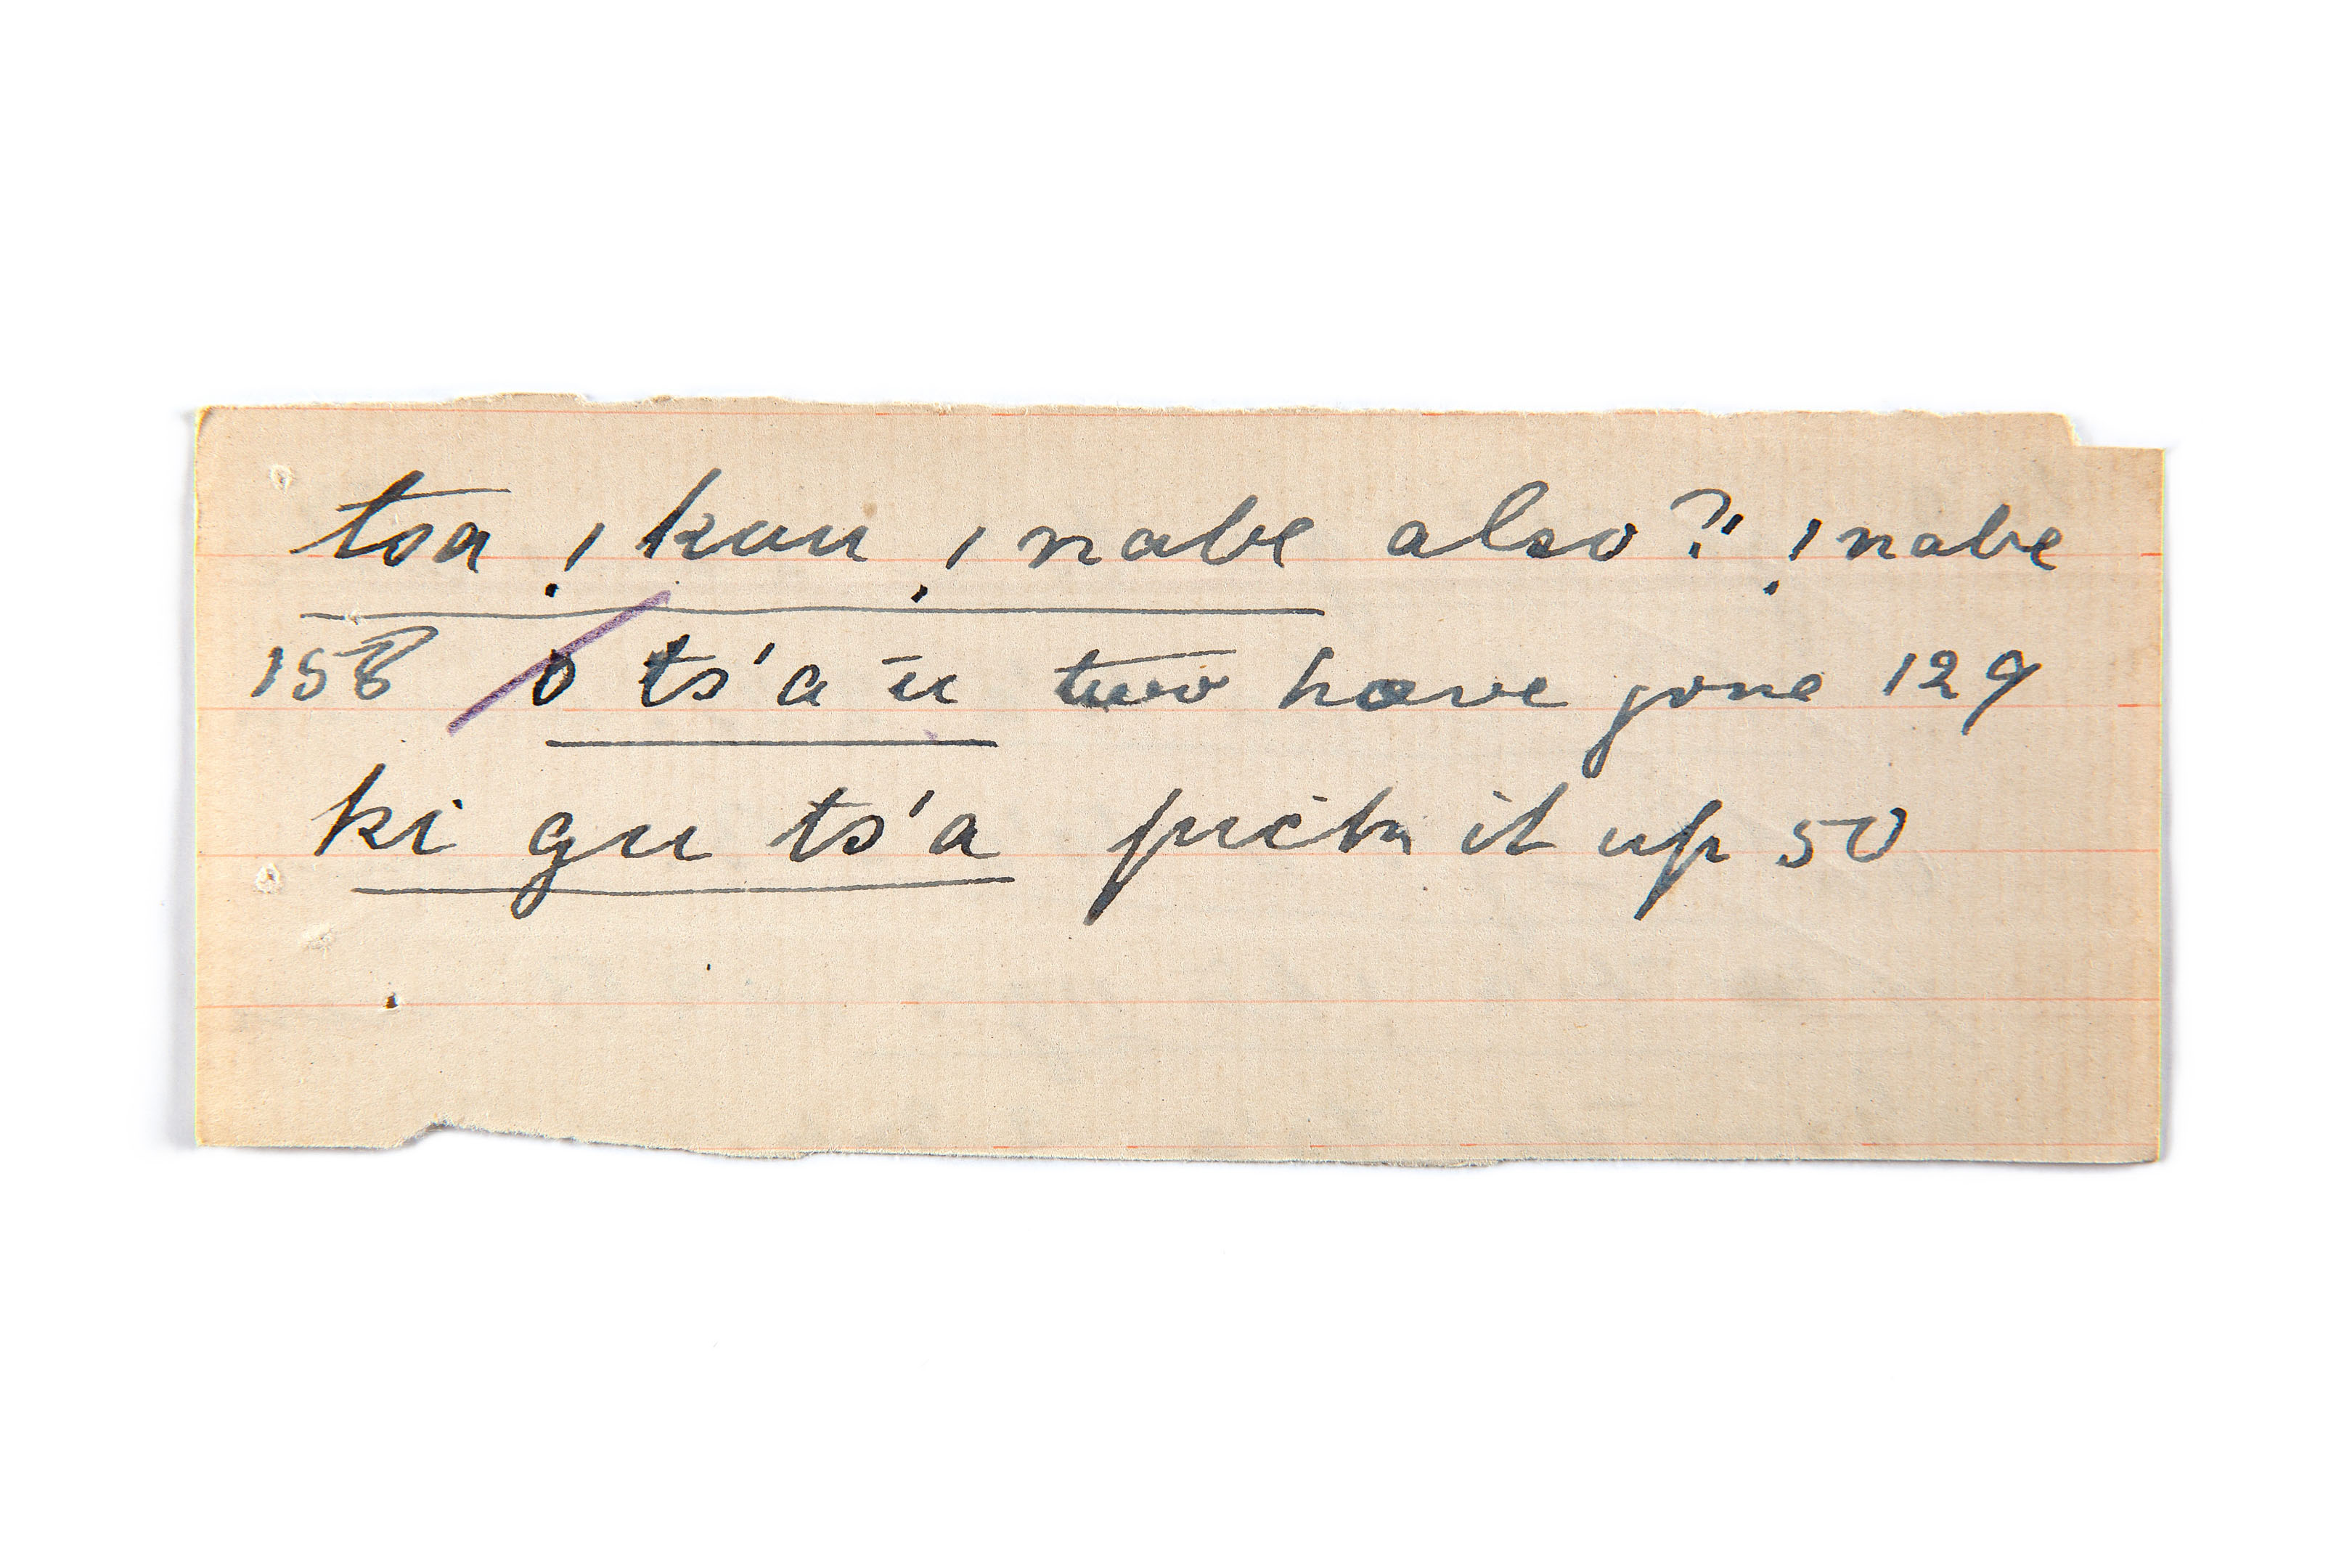 tsa ! kau ! nabe also? ! nabe
158 o ts'a ū two have gone 129
ki gu ts'a pick it up 50